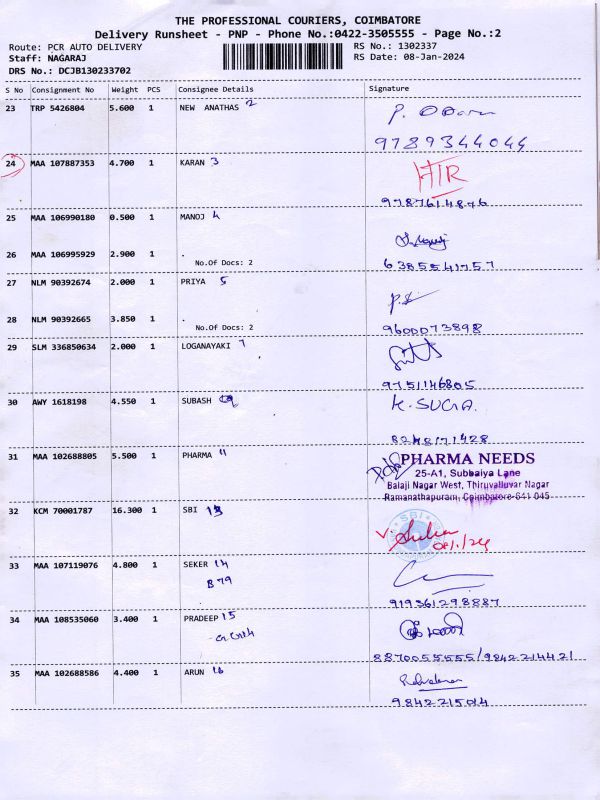 THE PROFESSIONAL COURIERS, COIMBATORE
Delivery Runsheet - PNP - Phone No.:0422-3505555 - Page No.:2
Route: PCR AUTO DELIVERY RS No.: 1302337
Staff: NAGARAJ RS Date: 08-Jan-2024
DRS No.: DCJB130233702
S No Consignment No Weight PCS Consignee Details Signature
23 TRP 5426804 5.600 1 NEW ANATHAS 2
9789344044
24 MAA 107887353 4.700 1 KARAN 3
9787614876
25 MAA 106990180 0.500 1 MANOJ 4
26 MAA 106995929 2.900 1 .
No.Of Docs: 2 6385541757
27 NLM 90392674 2.000 1 PRIYA 5
28 NLM 90392665 3.850 1 .
No.Of Docs: 2 9600073898
29 SLM 336850634 2.000 1 LOGANAYAKI 7
9751146805
30 AWY 1618198 4.550 1 SUBASH K. SUGA.
8248171428
31 MAA 102688805 5.500 1 PHARMA 11 PHARMA NEEDS
25-A1, Subbaiya Lane
Balaji Nagar West, Thiruvalluvar Nagar
Ramanathapuram, Coimbatore-641 045
32 KCM 70001787 16.300 1 SBI 13
SBI
33 MAA 107119076 4.800 1 SEKER 14
B79
919361298887
34 MAA 108535060 3.400 1 PRADEEP 15
8870055555/9842214421
35 MAA 102688586 4.400 1 ARUN 16
9842215014